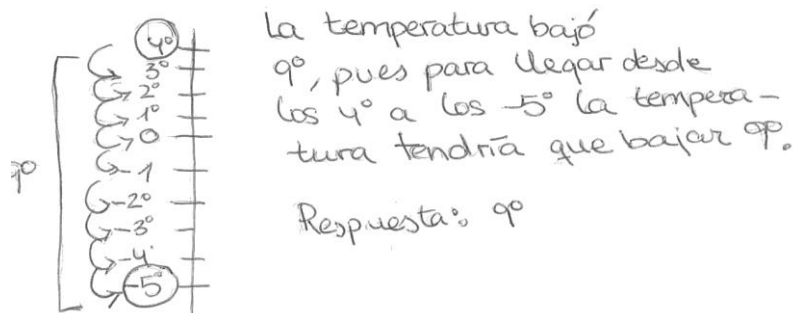 4°
3°
2°
1°
0
-1
-2°
-3°
-4
-5°
9°
La temperatura bajó
9°, pues para llegar desde
los 4° a los -5° la tempera-
tura tendría que bajar 9°.
Respuesta: 9°